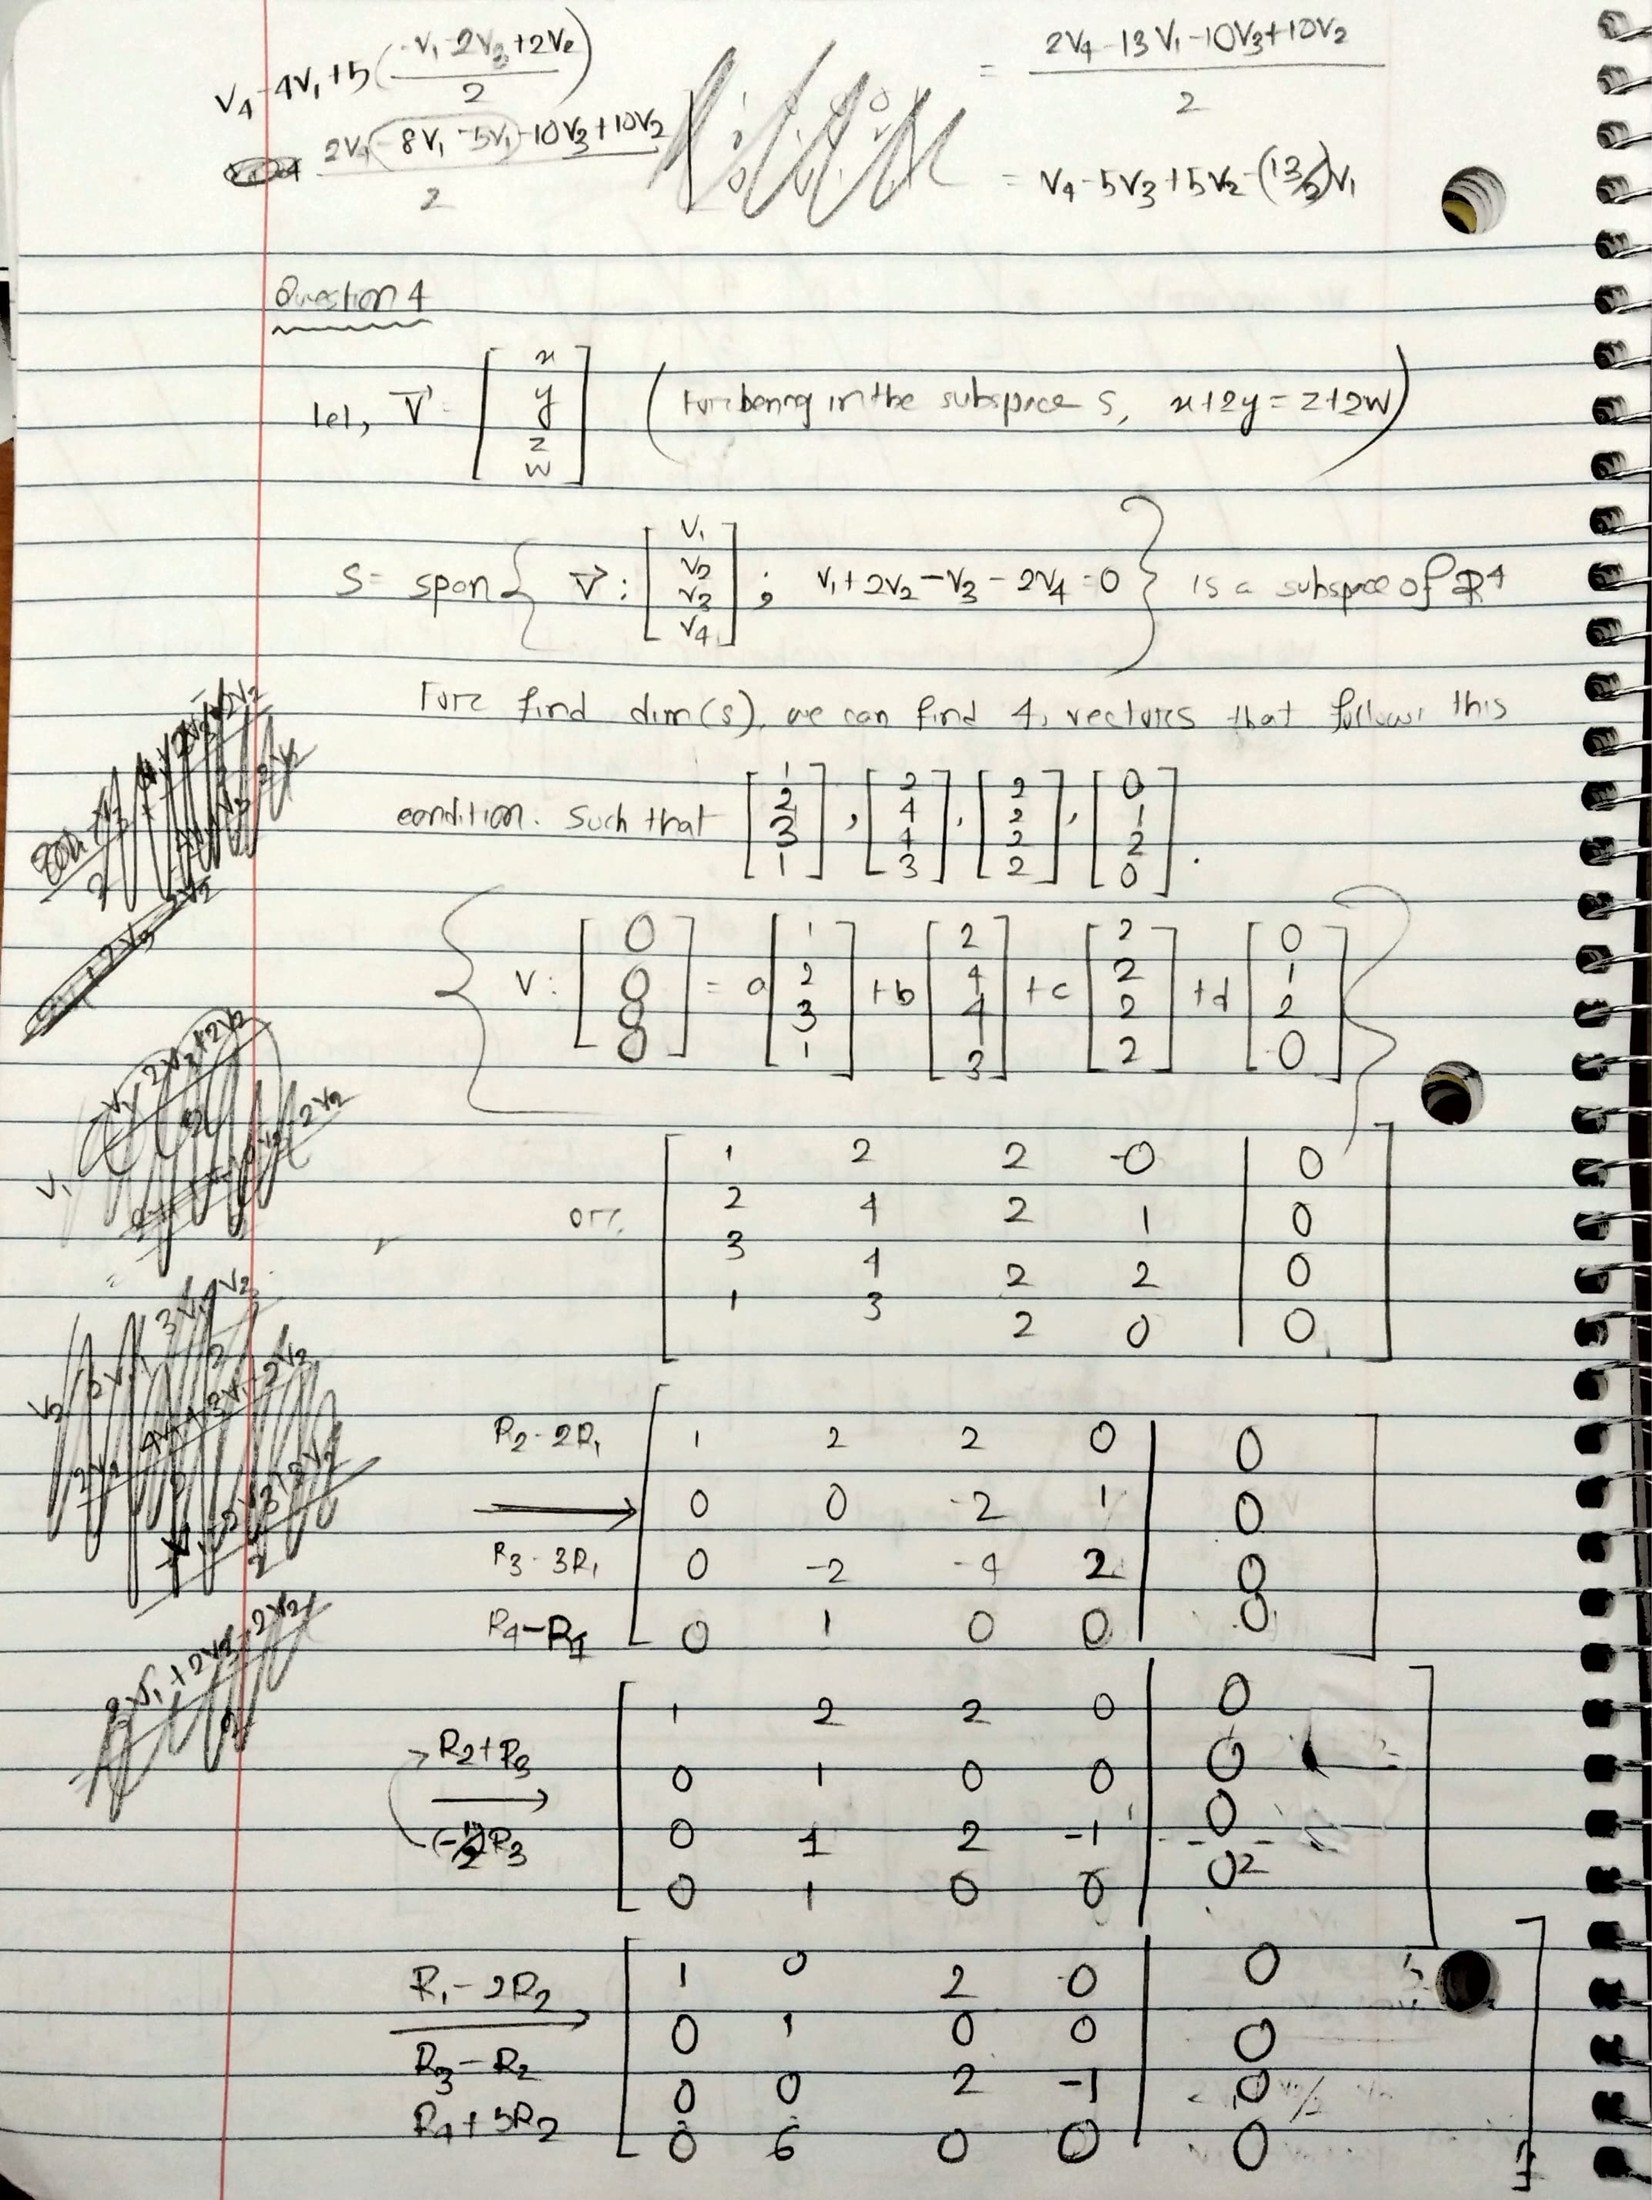 V4-4V1+5(-V1-2V3+2V2/2)
2V4-8V1-5V1-10V3+10V2/2
= 2V4-13V1-10V3+10V2/2
= V4-5V3+5V2-(13/2)V1
Question 4
Let, V⃗ = [x y z w] (For being in the subspace S, x+2y=z+2w)
S= span{ V⃗: [V1 V2 V3 V4]; V1+2V2-V3-2V4=0 } is a subspace of R4
For find dim(s), we can find 4, vectors that follows this
condition. Such that [1 2 3 1], [2 4 4 3], [2 2 2 2], [0 1 2 0].
{ V: [0 0 0 0] = a[1 2 3 1] +b[2 4 4 3] +c[2 2 2 2] +d[0 1 2 0] }
or, [1 2 2 0 | 0]
2 4 2 1 | 0
3 4 2 2 | 0
1 3 2 0 | 0
R2-2R1 [1 2 2 0 | 0]
→ 0 0 -2 1 | 0
R3-3R1 0 -2 -4 2 | 0
R4-R1 0 1 0 0 | 0
1 2 2 0 | 0
R2+R3 → 0 1 0 0 | 0
(-1/2)R3 0 1 2 -1 | 0
0 1 0 0 | 0
R1-2R2 → 1 0 2 0 | 0
0 1 0 0 | 0
R3-R2 0 0 2 -1 | 0
R4+5R2 0 6 0 0 | 0